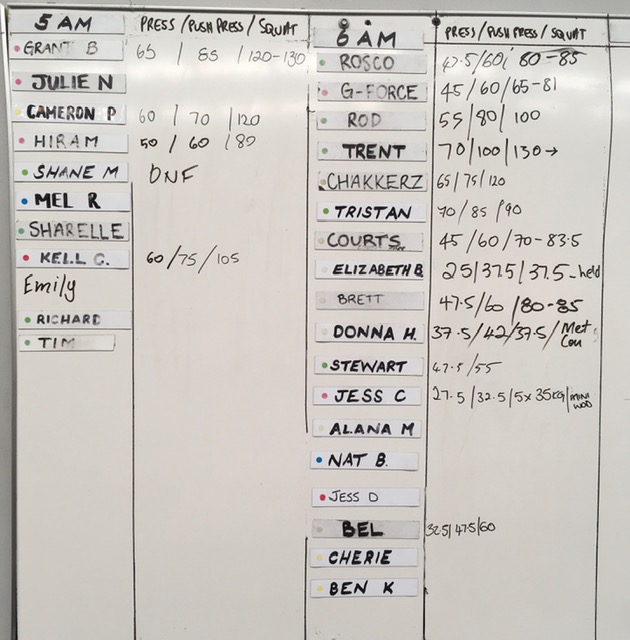 5 AM PRESS / PUSH PRESS / SQUAT
GRANT B 65 / 85 / 120-130
JULIE N
CAMERON P 60 / 70 / 120
HIRAM 50 / 60 / 80
SHANE M DNF
MEL R
SHARELLE
KELL C. 60 / 75 / 105
Emily
RICHARD
TIM
6 AM PRESS / PUSH PRESS / SQUAT
ROSCO 47.5/60/ 80-85
G-FORCE 45/60/65-81
ROD 55/80/100
TRENT 70/100/130→
CHAKKERZ 65/75/120
TRISTAN 70/85/90
COURTS 45/60/70-83.5
ELIZABETH B 25/37.5/37.5-held
BRETT 47.5/60/80-85
DONNA H. 37.5/42/37.5/Met Con
STEWART 47.5/55
JESS C 27.5/32.5/5x35KG/MINI WOD
ALANA M
NAT B.
JESS D
BEL 32.5/47.5/60
CHERIE
BEN K